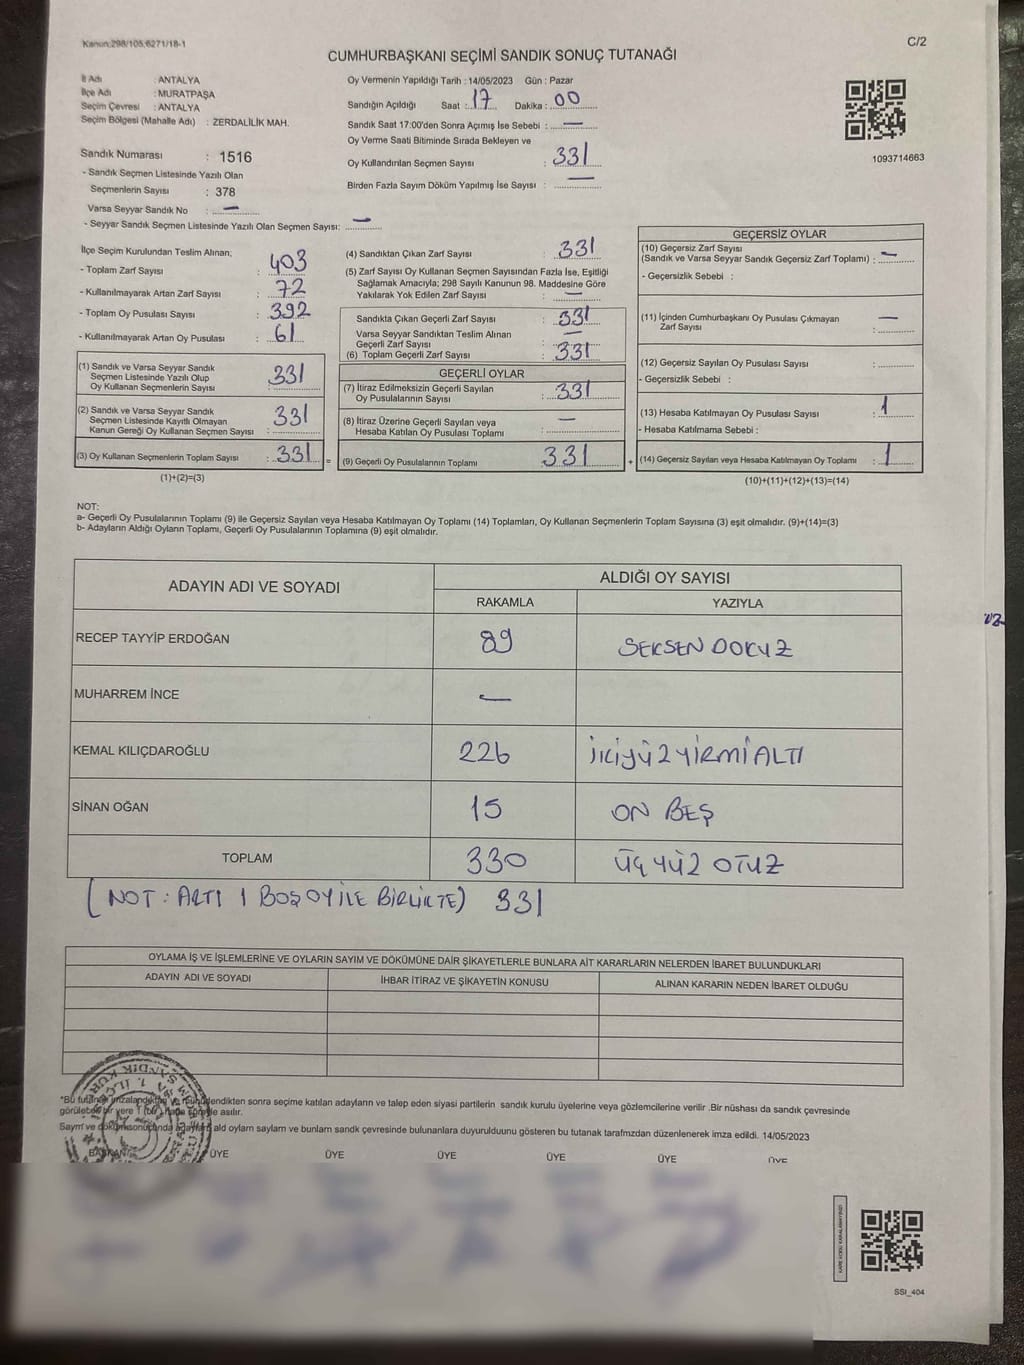 Kanun:298/105;6271/18-1
C/2
CUMHURBAŞKANI SEÇİMİ SANDIK SONUÇ TUTANAĞI
İl Adı : ANTALYA
İlçe Adı : MURATPAŞA
Seçim Çevresi : ANTALYA
Seçim Bölgesi (Mahalle Adı) : ZERDALİLİK MAH.
Sandık Numarası : 1516
- Sandık Seçmen Listesinde Yazılı Olan
Seçmenlerin Sayısı : 378
Varsa Seyyar Sandık No : —
- Seyyar Sandık Seçmen Listesinde Yazılı Olan Seçmen Sayısı: —
Oy Vermenin Yapıldığı Tarih : 14/05/2023 Gün : Pazar
Sandığın Açıldığı Saat : 17 Dakika : 00
Sandık Saat 17:00'den Sonra Açımış İse Sebebi : —
Oy Verme Saati Bitiminde Sırada Bekleyen ve
Oy Kullandırılan Seçmen Sayısı : 331
Birden Fazla Sayım Döküm Yapılmış İse Sayısı : —
1093714663
İlçe Seçim Kurulundan Teslim Alınan;
- Toplam Zarf Sayısı : 403
- Kullanılmayarak Artan Zarf Sayısı : 72
- Toplam Oy Pusulası Sayısı : 392
- Kullanılmayarak Artan Oy Pusulası : 61
(1) Sandık ve Varsa Seyyar Sandık
Seçmen Listesinde Yazılı Olup
Oy Kullanan Seçmenlerin Sayısı : 331
(2) Sandık ve Varsa Seyyar Sandık
Seçmen Listesinde Kayıtlı Olmayan
Kanun Gereği Oy Kullanan Seçmen Sayısı : 331
(3) Oy Kullanan Seçmenlerin Toplam Sayısı : 331 =
(1)+(2)=(3)
(4) Sandıktan Çıkan Zarf Sayısı : 331
(5) Zarf Sayısı Oy Kullanan Seçmen Sayısından Fazla İse, Eşitliği
Sağlamak Amacıyla; 298 Sayılı Kanunun 98. Maddesine Göre
Yakılarak Yok Edilen Zarf Sayısı : —
Sandıkta Çıkan Geçerli Zarf Sayısı : 331
Varsa Seyyar Sandıktan Teslim Alınan
Geçerli Zarf Sayısı : —
(6) Toplam Geçerli Zarf Sayısı : 331
GEÇERLİ OYLAR
(7) İtiraz Edilmeksizin Geçerli Sayılan
Oy Pusulalarının Sayısı : 331
(8) İtiraz Üzerine Geçerli Sayılan veya
Hesaba Katılan Oy Pusulası Toplamı : —
(9) Geçerli Oy Pusulalarının Toplamı 331 +
GEÇERSİZ OYLAR
(10) Geçersiz Zarf Sayısı
(Sandık ve Varsa Seyyar Sandık Geçersiz Zarf Toplamı) : —
- Geçersizlik Sebebi :
(11) İçinden Cumhurbaşkanı Oy Pusulası Çıkmayan
Zarf Sayısı : —
(12) Geçersiz Sayılan Oy Pusulası Sayısı :
- Geçersizlik Sebebi :
(13) Hesaba Katılmayan Oy Pusulası Sayısı : 1
- Hesaba Katılmama Sebebi :
(14) Geçersiz Sayılan veya Hesaba Katılmayan Oy Toplamı : 1
(10)+(11)+(12)+(13)=(14)
NOT:
a- Geçerli Oy Pusulalarının Toplamı (9) ile Geçersiz Sayılan veya Hesaba Katılmayan Oy Toplamı (14) Toplamları, Oy Kullanan Seçmenlerin Toplam Sayısına (3) eşit olmalıdır. (9)+(14)=(3)
b- Adayların Aldığı Oyların Toplamı, Geçerli Oy Pusulalarının Toplamına (9) eşit olmalıdır.
ADAYIN ADI VE SOYADI
ALDIĞI OY SAYISI
RAKAMLA YAZIYLA
RECEP TAYYİP ERDOĞAN 89 SEKSEN DOKUZ
MUHARREM İNCE —
KEMAL KILIÇDAROĞLU 226 İKİYÜZYİRMİALTI
SİNAN OĞAN 15 ON BEŞ
TOPLAM 330 ÜÇYÜZ OTUZ
(NOT: ARTI 1 BOŞ OY İLE BİRLİKTE) 331
OYLAMA İŞ VE İŞLEMLERİNE VE OYLARIN SAYIM VE DÖKÜMÜNE DAİR ŞİKAYETLERLE BUNLARA AİT KARARLARIN NELERDEN İBARET BULUNDUKLARI
ADAYIN ADI VE SOYADI İHBAR İTİRAZ VE ŞİKAYETİN KONUSU ALINAN KARARIN NEDEN İBARET OLDUĞU
*Bu tutanak imzalandıktan ve mühürlendikten sonra seçime katılan adayların ve talep eden siyasi partilerin sandık kurulu üyelerine veya gözlemcilerine verilir .Bir nüshası da sandık çevresinde
görülebilen bir yere 1 (bir) hafta süreyle asılır.
Sayım ve döküm sonucunda adayların aldığı oyların sayılarını ve bunların sandık çevresinde bulunanlara duyurulduğunu gösteren bu tutanak tarafımızdan düzenlenerek imza edildi. 14/05/2023
BAŞKAN ÜYE ÜYE ÜYE ÜYE ÜYE ÜYE
SSI_404